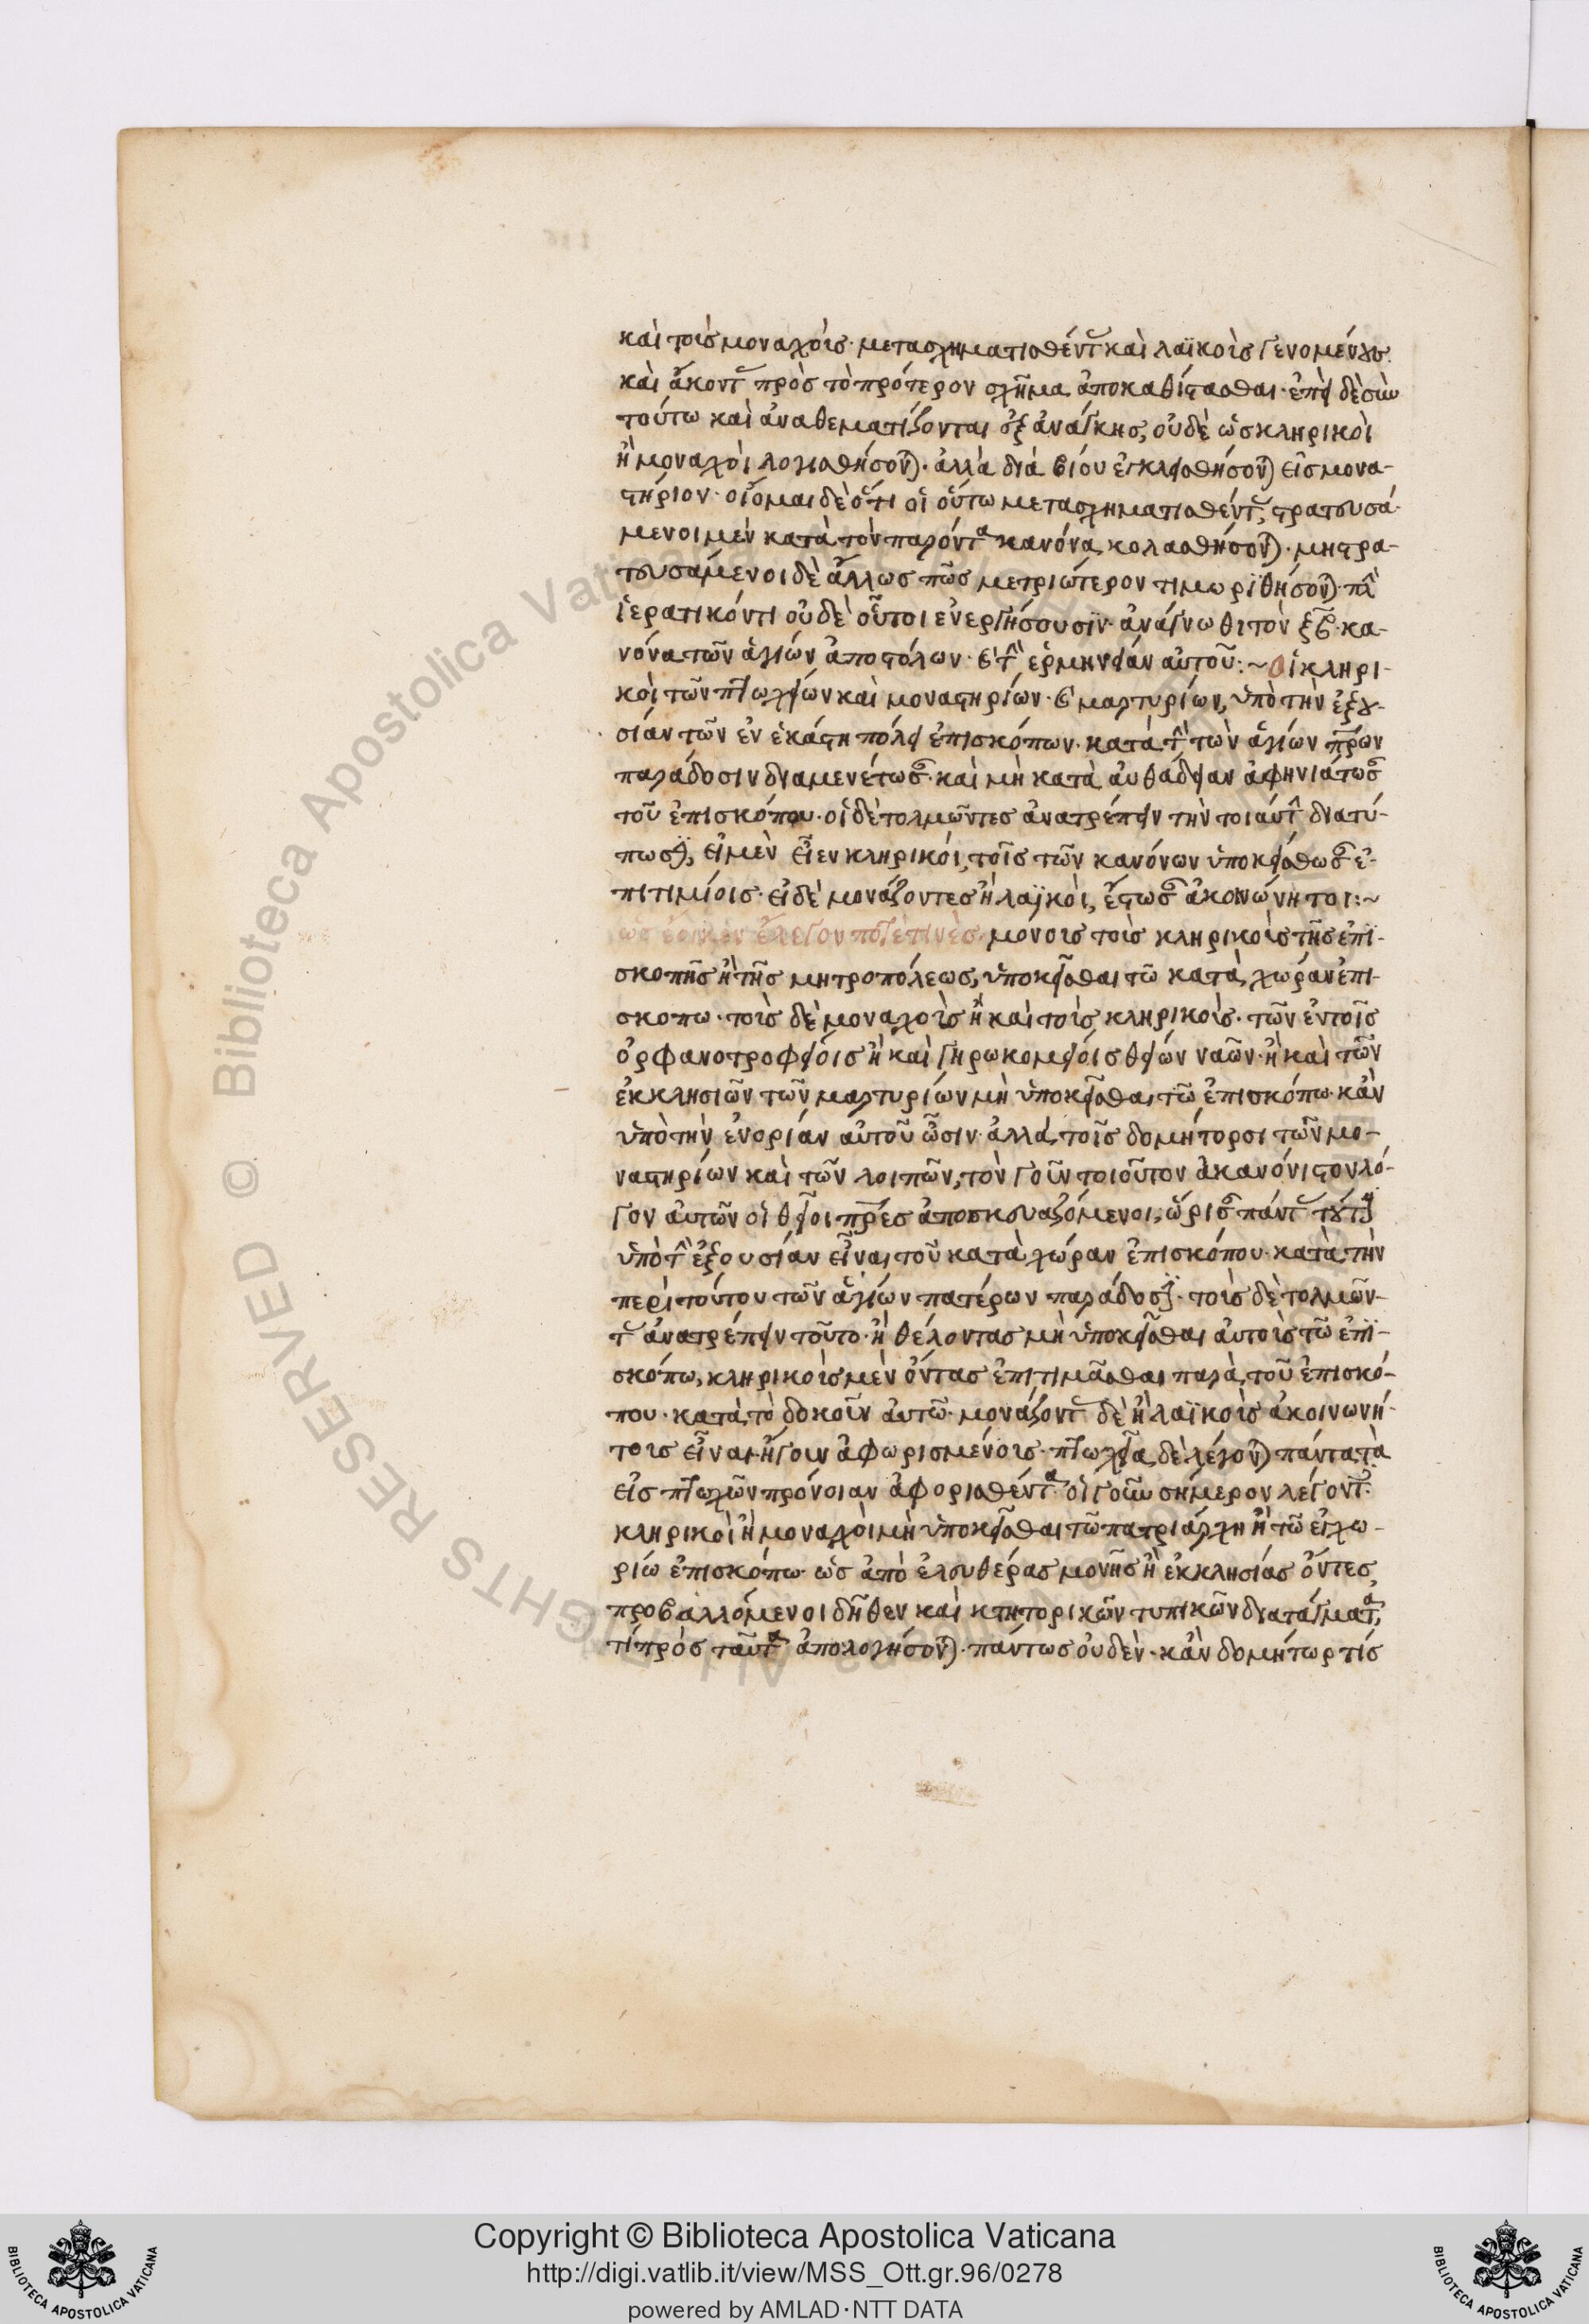 καὶ τοὺς μοναχοὺς μετασχηματισθέντ καὶ λαϊκοὺς γενομένους
καὶ ἄκοντ πρὸς τὸ πρότερον σχῆμα ἀποκαθίστασθαι· ἐπεὶ δὲ σὺν
τούτω καὶ ἀναθεματίζονται ἐξ ἀνάγκης, οὐδὲ ὡς κληρικοὶ
ἢ μοναχοὶ λογισθήσον· ἀλλὰ διὰ βίου ἐγκλεισθήσον εἰς μονα-
στήριον· οἶομαι δὲ ὅτι οἱ οὕτω μετασχηματισθέντ, στρατευσά-
μενοι μὲν κατὰ τὸν παρόντα κανόνα κολασθήσον· μὴ στρα-
τευσάμενοι δὲ ἄλλως πῶς μετριώτερον τιμωρϊθήσον· πλὴν
ἱερατικόν τι οὐδὲ οὗτοι ἐνεργήσουσϊν· ἀνάγνωθι τὸν ξβ κα-
νόνα τῶν ἁγίων ἀποστόλων· καὶ τὴν ἑρμηνείαν αὐτοῦ:~ Οἱ κληρι-
κοὶ τῶν πτωχείων καὶ μοναστηρίων· καὶ μαρτυρίων, ὑπὸ τὴν ἐξου-
σίαν τῶν ἐν ἑκάστη πόλει ἐπισκόπων· κατὰ τὴν τῶν ἁγίων πρων
παράδοσιν διαμενέτωσ· καὶ μὴ κατὰ αὐθάδειαν ἀφηνιάτωσ
τοῦ ἐπισκόπου· οἱ δὲ τολμῶντες ἀνατρέπειν τὴν τοιαύτ διατύ-
πωσϊν, εἰ μὲν εἶεν κληρικοί, τοῖς τῶν κανόνων ὑποκείσθωσ ἐ-
πιτιμίοις· εἰ δὲ μονάζοντες ἢ λαϊκοὶ, ἔστωσ ἀκοινώνητοι:~
ὡς ἔοικεν ἔλεγον ποτὲ τινὲς μόνους τοὺς κληρικοὺς τῆς ἐπϊ-
σκοπῆς ἢ τῆς μητροπόλεως, ὑποκεῖσθαι τῶ κατὰ χώραν ἐπι-
σκοπω· τοὺς δὲ μοναχοὺς ἢ καὶ τοὺς κληρικοὺς· τῶν ἐν τοῖς
ὀρφανοτροφείοις ἢ καὶ γηρωκομείοις θείων ναῶν· ἢ καὶ τῶν
ἐκκλησιῶν τῶν μαρτυρίων μὴ ὑποκεῖσθαι τῶ ἐπισκόπω· κἂν
ὑπὸ τὴν ἐνορίαν αὐτοῦ ὦσιν· ἀλλὰ τοῖς δομήτορσι τῶν μο-
ναστηρίων καὶ τῶν λοιπῶν, τὸν γοῦν τοιοῦτον ἀκανόνιστον λό-
γον αὐτῶν οἱ θεῖοι πρες ἀποσκευαζόμενοι, ὥρισ πάντ τούτ
ὑπὸ τὴν ἐξουσίαν εἶναι τοῦ κατὰ χώραν ἐπισκόπου· κατὰ τὴν
περὶ τούτου τῶν ἁγίων πατέρων παράδοσϊν· τοὺς δὲ τολμῶν-
τ ἀνατρέπειν τοῦτο· ἢ θέλοντας μὴ ὑποκεῖσθαι αὐτοὺς τῶ ἐπϊ-
σκόπω, κληρικοὺς μὲν ὄντας ἐπιτιμᾶσθαι παρὰ τοῦ ἐπισκό-
που· κατὰ τὸ δοκοῦν αὐτῶ· μονάζοντ δὲ ἢ λαϊκοὺς ἀκοινωνή-
τους εἶναι· ἤγουν ἀφωρισμένους· πτωχεῖα δὲ λέγον πάντα τὰ
εἰς πτωχῶν πρόνοιαν ἀφορισθέντα· οἱ γοῦν σήμερον λέγοντ
κληρικοὶ ἢ μοναχοὶ μὴ ὑποκεῖσθαι τῶ πατριάρχη ἢ τῶ ἐγχω-
ρίω ἐπισκόπω· ὡς ἀπὸ ἐλευθέρας μονῆς ἢ ἐκκλησίας ὄντες
προβαλλόμενοι δῆθεν καὶ κτητορικῶν τυπικῶν διατάγματα,
τί πρὸς ταῦτα ἀπολογήσον· πάντως οὐδὲν· κἂν δομήτωρ τίς
Copyright © Biblioteca Apostolica Vaticana
http://digi.vatlib.it/view/MSS_Ott.gr.96/0278
powered by AMLAD·NTT DATA